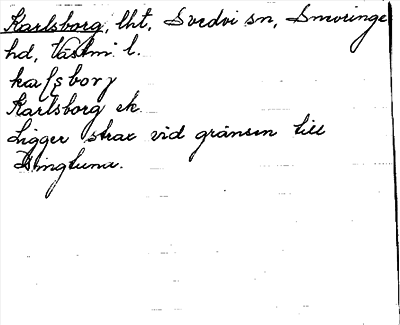 Karlsborg, lht, Svedvi sn, Snevringe
hd, Västm. l.
ka/ſsborj
Karlsborg ek.
Ligger strax vid gränsen till
Dingtuna.